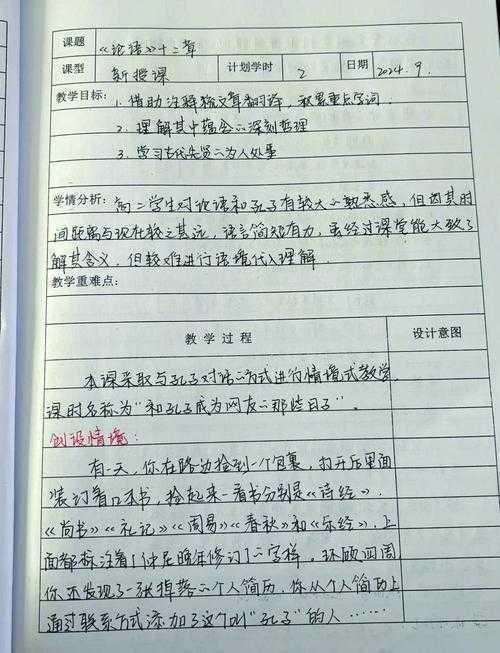 课题 《论语》十二章
课型 新授课 计划学时 2 日期 2024.9.
教学目标: 1. 借助注释疏文章翻译, 积累重点字词.
2. 理解其中蕴含的深刻哲理
3. 学习古代先贤的为人处事
学情分析: 高二学生对论语和孔子有较大的熟悉感, 但因其时
间距离与现在较之甚远, 语言简短有力, 虽经过课堂能大致了
解其含义, 但较难进行语境代入理解.
教学重难点:
教 学 过 程 设计意图
本课采取与孔子对话的方式进行情境式教学,
课时名称为"和孔子成为网友的那些日子".
创设情境:
有一天, 你在路边捡到一个包裹, 打开后里面
装订着口本书, 捡起来一看书分别是《诗经》、
《尚书》《礼记》《周易》《春秋》和《乐经》, 上
面都标注着"仲尼晚年修订"的字样. 环顾四周
你还发现了一张掉落的个人简历, 你从个人简历上
通过联系方式添加了这个叫"孔子"的人……